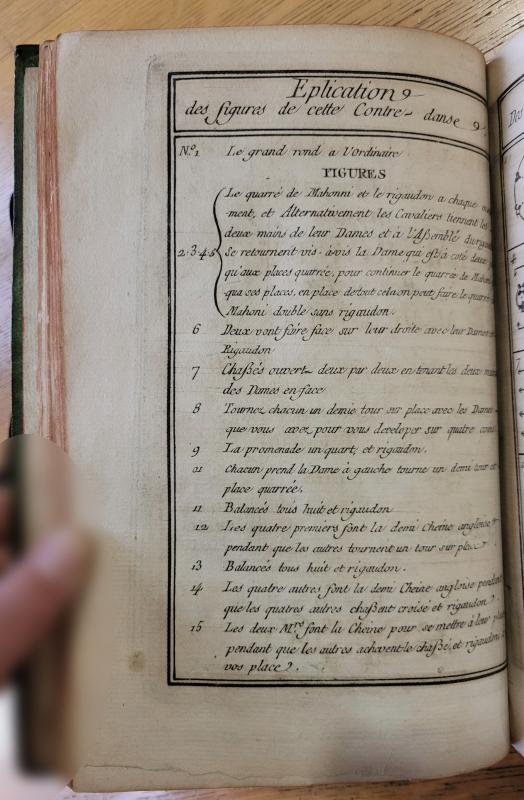 Eplication
des figures de cette Contre-danse
N.º1 Le grand rond a l'ordinaire
FIGURES
Le quarré de Mahonni et le rigaudon a chaque
ment, et Alternativement les Cavaliers tiennent les
deux mains de leur Dames et à l'Assemblé du
2·3·4·5 Se retournent vis-àvis la Dame qui est a coté
qu'aux places quarrée, pour continuer le quarrée de
qua ses places, en place de tout cela on peut faire le quarré
Mahoni double sans rigaudon.
6 Deux vont faire face sur leur droite avec leur Dames
Rigaudon
7 Chassés ouvert deux par deux en tenant les deux
des Dames en face
8 Tournez chacun un demie tour sur place avec les Dames
que vous avez pour vous developer sur quatre
9 La promenade un quart, et rigaudon.
01 chacun prend la Dame à gauche tourne un demi tour
place quarrée.
11 Balancés tous huit et rigaudon
12 Les quatre premiers font la demi Cheine angloise
pendant que les autres tournent un tour sur place
13 Balancés tous huit et rigaudon.
14 Les quatre autres font la demi Cheine angloise
que les quatres autres chassent croisé et rigaudon
15 Les deux M.rs font la Cheine pour se mettre à leur
pendant que les autres achevent le chassé, et rigaudon
vos place
Des